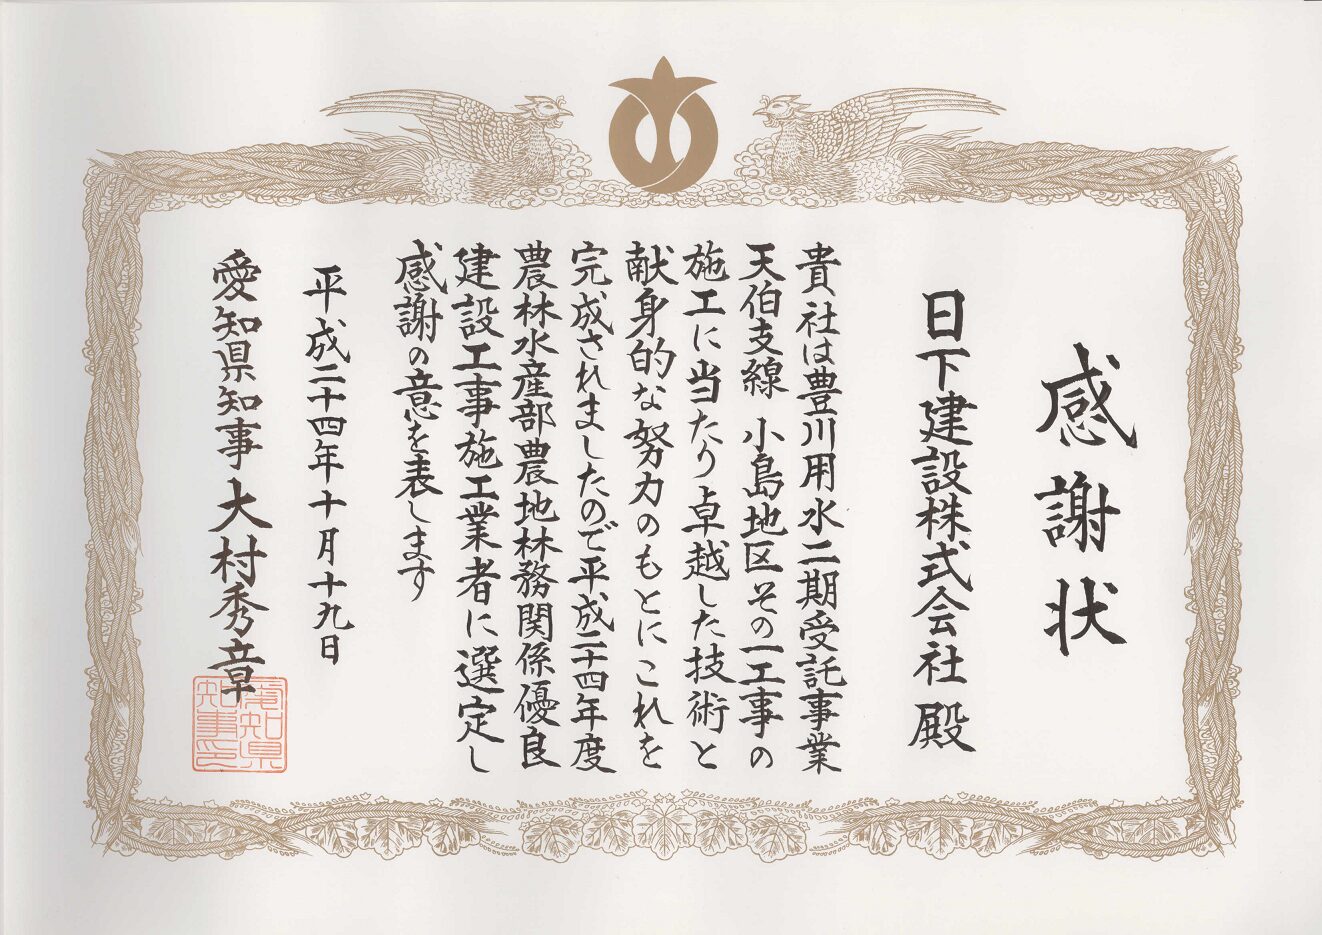 感謝状
日下建設株式会社 殿
貴社は豊川用水二期受託事業
天伯支線 小島地区その一工事の
施工に当たり卓越した技術と
献身的な努力のもとにこれを
完成されましたので平成二十四年度
農林水産部農地林務関係優良
建設工事施工業者に選定し
感謝の意を表します
平成二十四年十月十九日
愛知県知事 大村秀章
愛知県
知事印